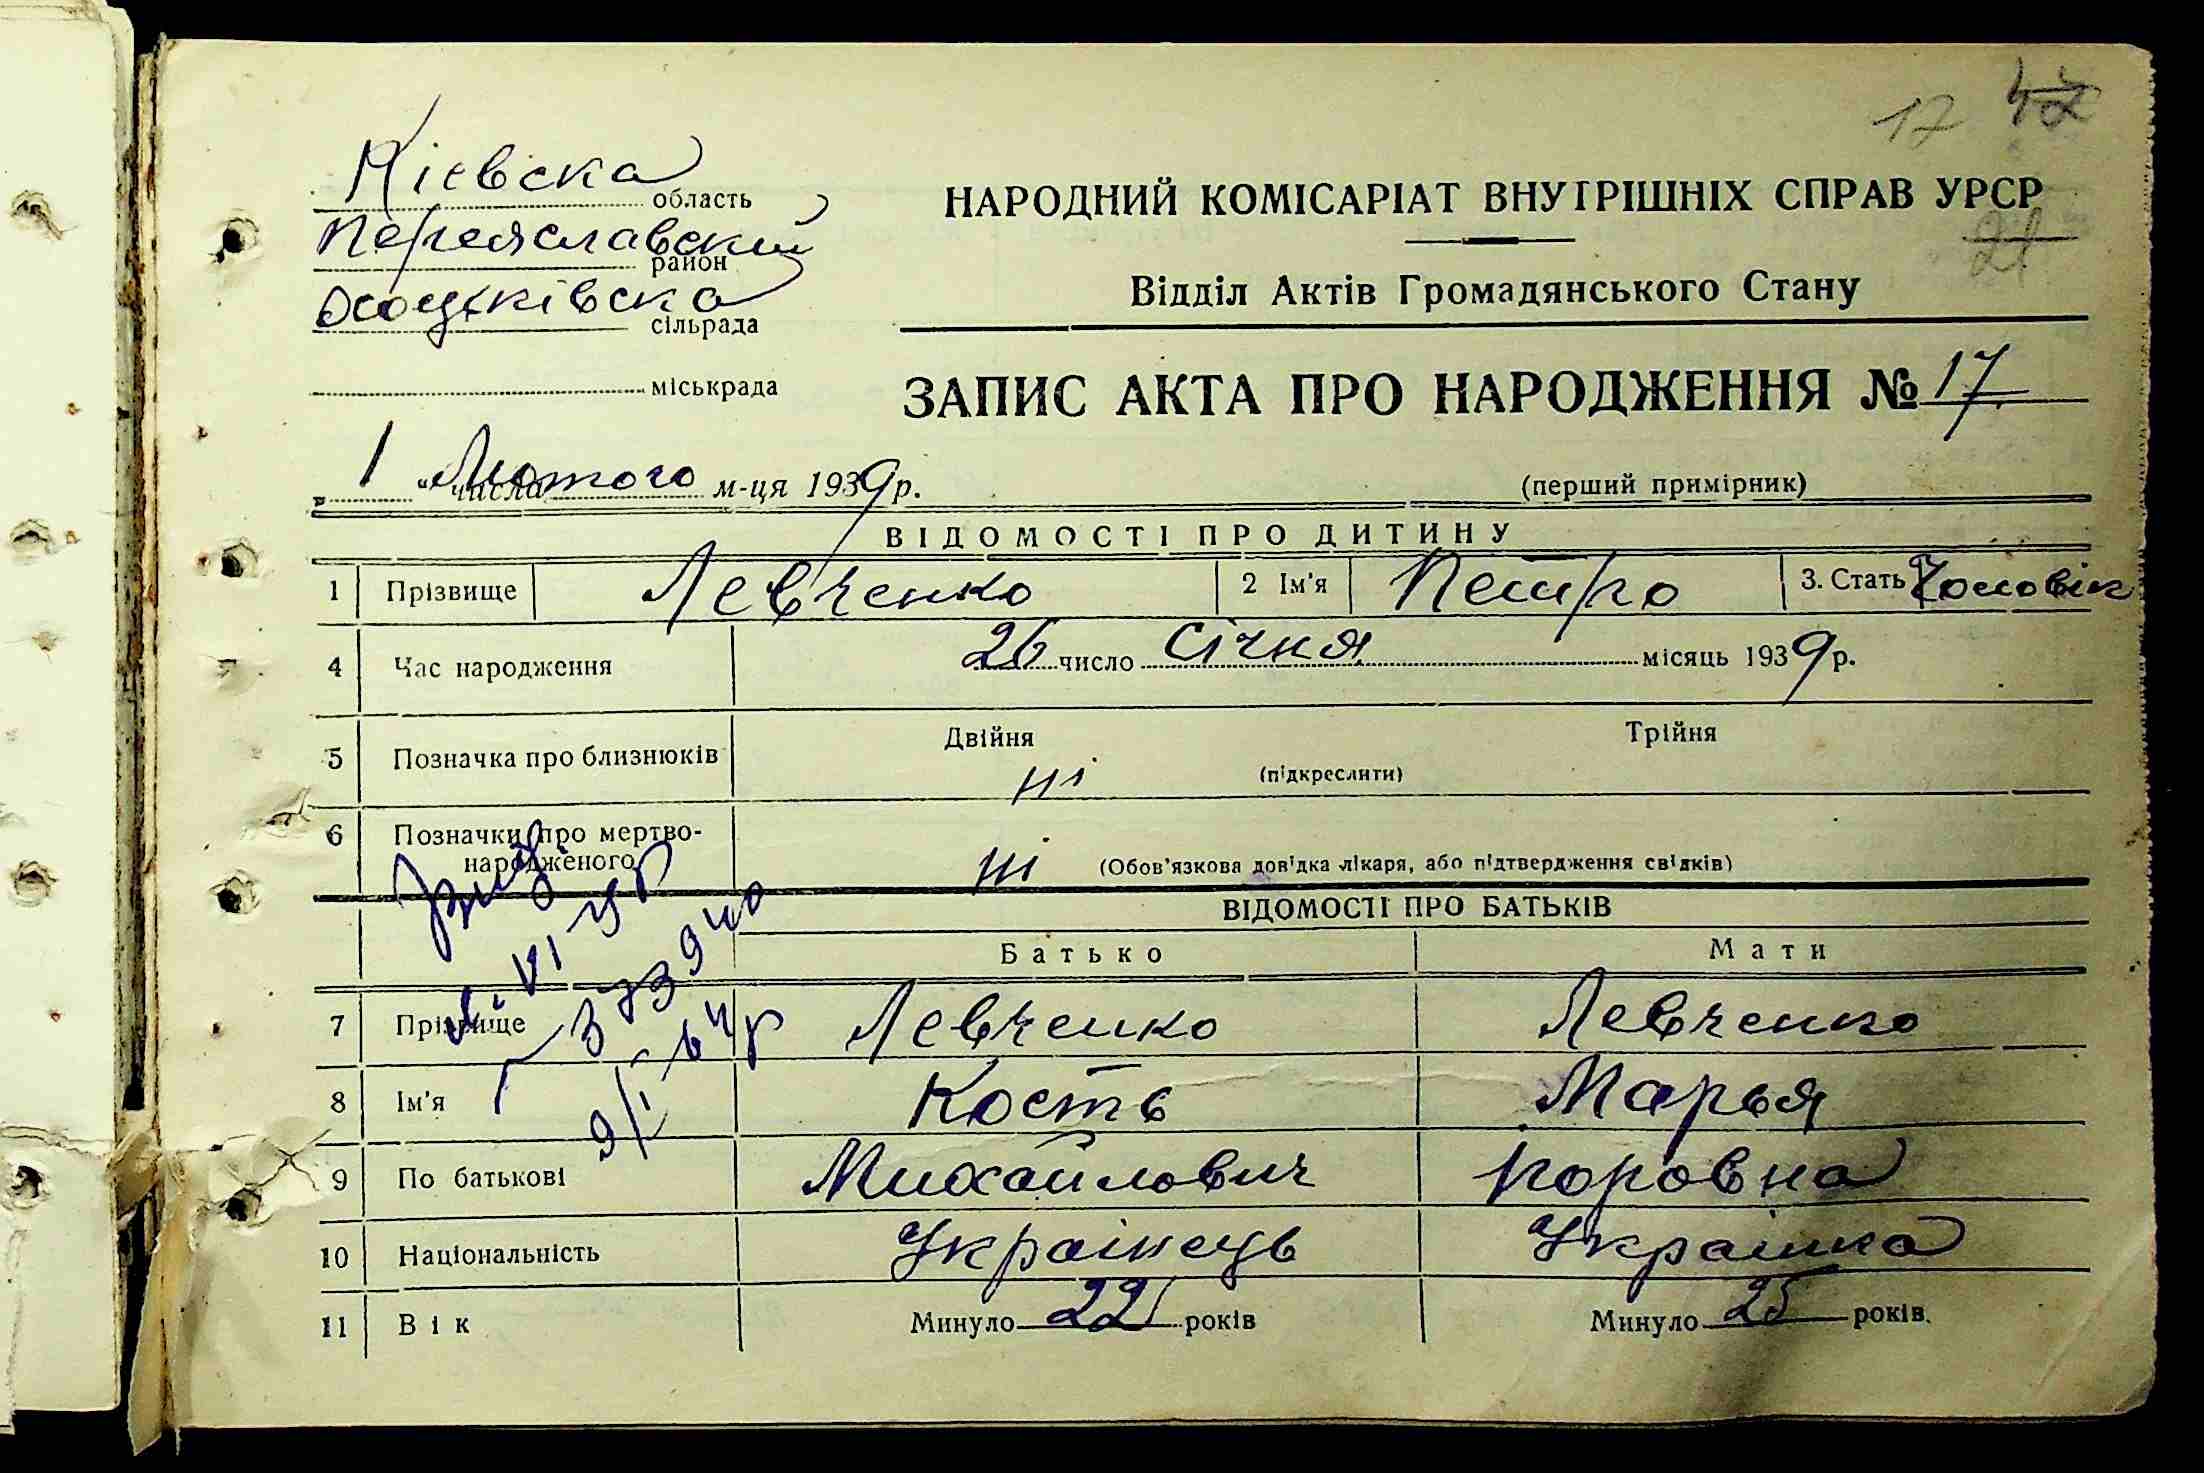 17 42
Кієвска область
Переяславский район
Хоцьківска сільрада
міськрада
НАРОДНИЙ КОМІСАРІАТ ВНУТРІШНІХ СПРАВ УРСР
21
Відділ Актів Громадянського Стану
ЗАПИС АКТА ПРО НАРОДЖЕННЯ № 17
„ 1 “ числа Лютого м-ця 1939 р.
(перший примірник)
ВІДОМОСТІ ПРО ДИТИНУ
1 Прізвище Левченко 2 Ім'я Петро 3. Стать Чоловік
4 Час народження 26 число Січня місяць 1939 р.
5 Позначка про близнюків Двійня ні (підкреслити) Трійня
6 Позначки про мертво-
народженого ні (Обов'язкова довідка лікаря, або підтвердження свідків)
ВІДОМОСТІ ПРО БАТЬКІВ
Батько Мати
7 Прізвище Левченко Левченко
8 Ім'я Кость Марья
9 По батькові Михайлович
10 Національність Украінець Украінка
11 Вік Минуло 22 років Минуло 25 років.
VI УР
373940
9/I-64р